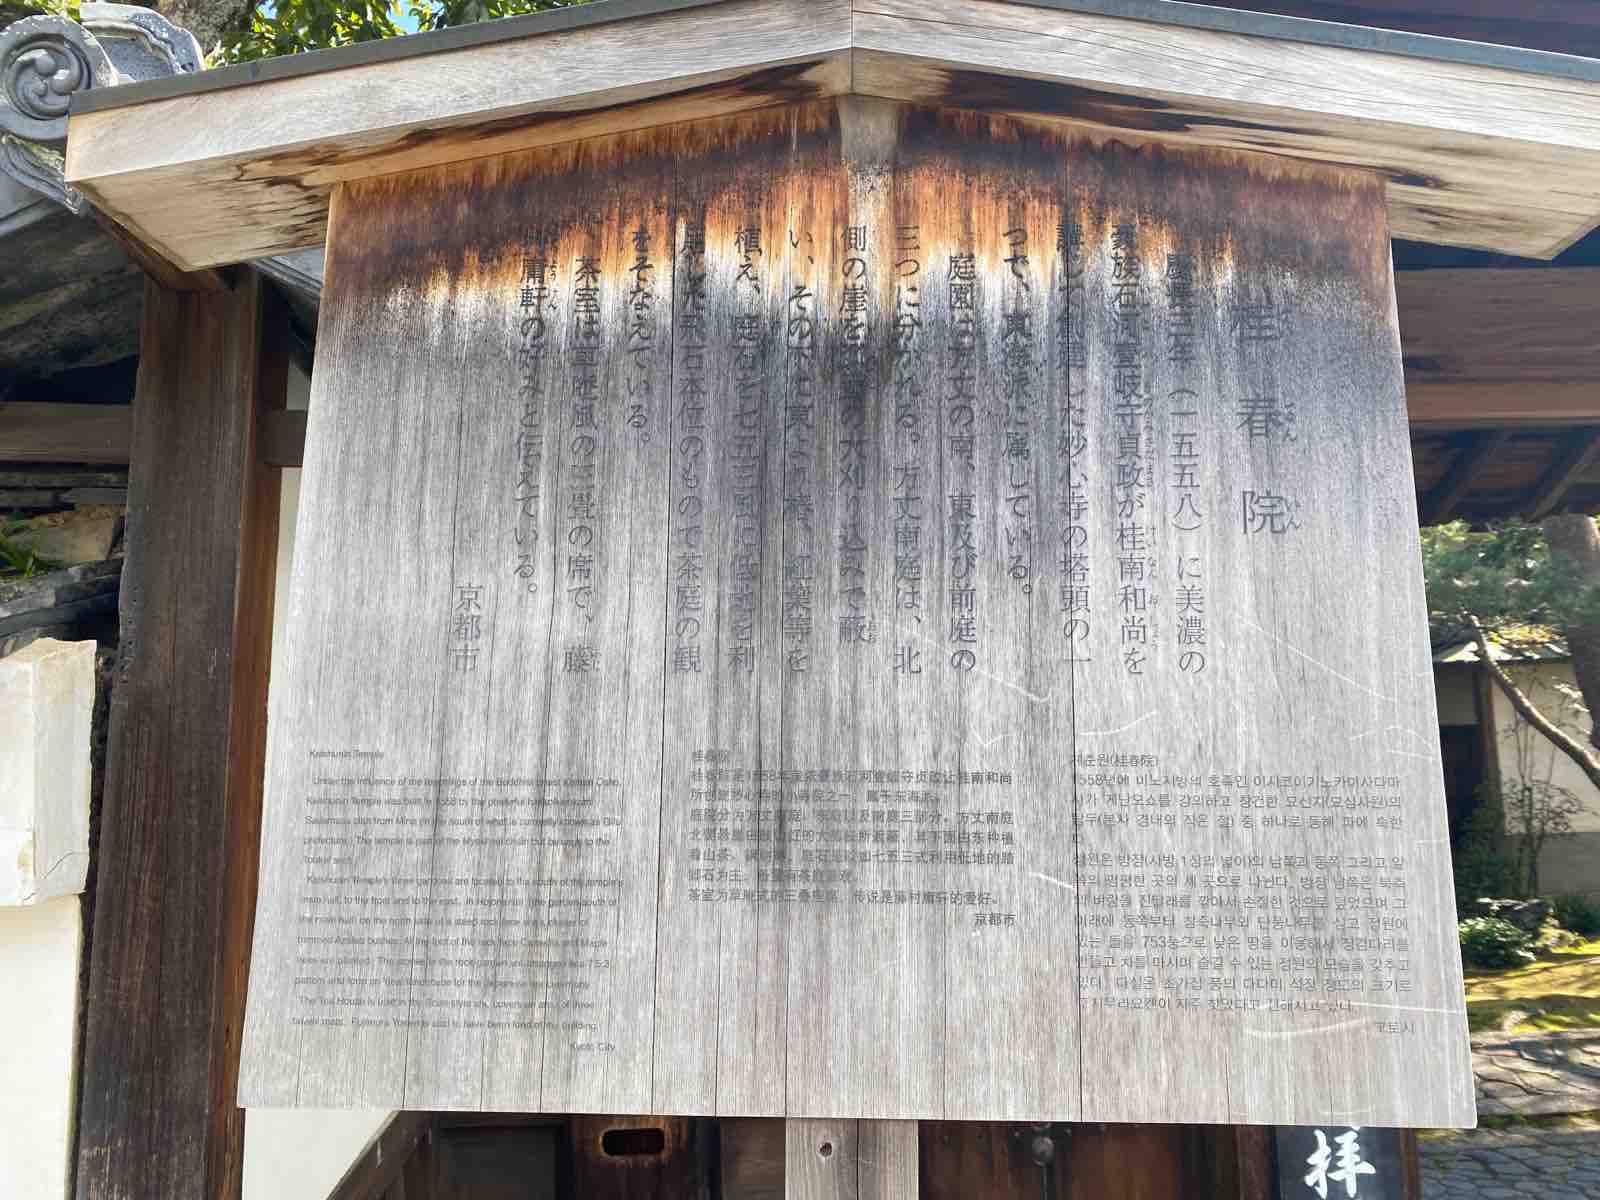 桂春院
三年（一五五八）に美濃の
族石河壹岐守貞政が桂南和尚を
して創建した妙心寺の塔頭の一
つで、東海派に属している。
庭園は方丈の南、東及び前庭の
三つに分かれる。方丈南庭は、北
側の崖を の大刈り込みで蔽
い、その下に東より椿、紅葉等を
植え、庭石を七五三風に低地を利
用した飛石本位のもので茶庭の観
をそなえている。
茶室は草庵風の三畳の席で、藤
庸軒の好みと伝えている。
京都市
Keishunin Temple
Under the influence of the teachings of the Buddhist priest Keinan Osho,
Keishunin Temple was built in 1558 by the powerful
Sadamasa clan from Mino (in the south of what is currently known as Gifu
prefecture). The temple is part of the Myoshinji chain but belongs to the
Toukai sect.
Keishunin Temple's three gardens are located to the south of the temple's
main hall, to the front and to the east. In Hojonantei (the garden south of
the main hall) on the north side of a steep rock face are
trimmed Azalea bushes. At the foot of the rock face Camellia and Maple
trees are planted. The stones in the rock garden are arranged in a 7:5:3
pattern and form an ideal landscape for the Japanese tea ceremony.
The Tea House is built in the Souan style and covers an area of three
tatami mats. Fujimura Yoken is said to have been fond of the building.
Kyoto City
桂春院
桂春院是1558年美浓豪族石河壹岐守贞政让桂南和尚
所创建妙心寺的小寺院之一，属于东海派。
庭院分为方丈南庭、东庭以及前庭三部分。方丈南庭
北侧悬崖 的大 所遮蔽，其下面由东种植
着山茶、 庭石是以如七五三式利用低地的踏
脚石为主，
茶室为草庵式的三叠座席，传说是藤村庸轩的爱好。
京都市
계춘원(桂春院)
1558년에 미노지방의 호족인 이시코이기노카미사다마
사가 게난오쇼를 강의하고 창건한 묘신지(묘심사원)의
탑두(본사 경내의 작은 절) 중 하나로 동해 파에 속한
정원은 방장(사방 1장의 넓이)의 남쪽과 동쪽 그리고 앞
쪽의 평평한 곳의 세 곳으로 나뉜다. 방장 남쪽은 북측
의 벼랑을 진달래를 깎아서 손질한 것으로 덮었으며 그
아래에 동쪽부터 동백나무와 단풍나무를 심고 정원에
있는 돌을 753풍으로 낮은 땅을 이용해서 징검다리를
만들고 차를 마시며 즐길 수 있는 정원의 모습을 갖추고
있다. 다실은 초가집 풍의 다다미 석장 정도의 크기로
후지무라요켄이 자주 찾았다고 전해지고 있다.
교토시
拝